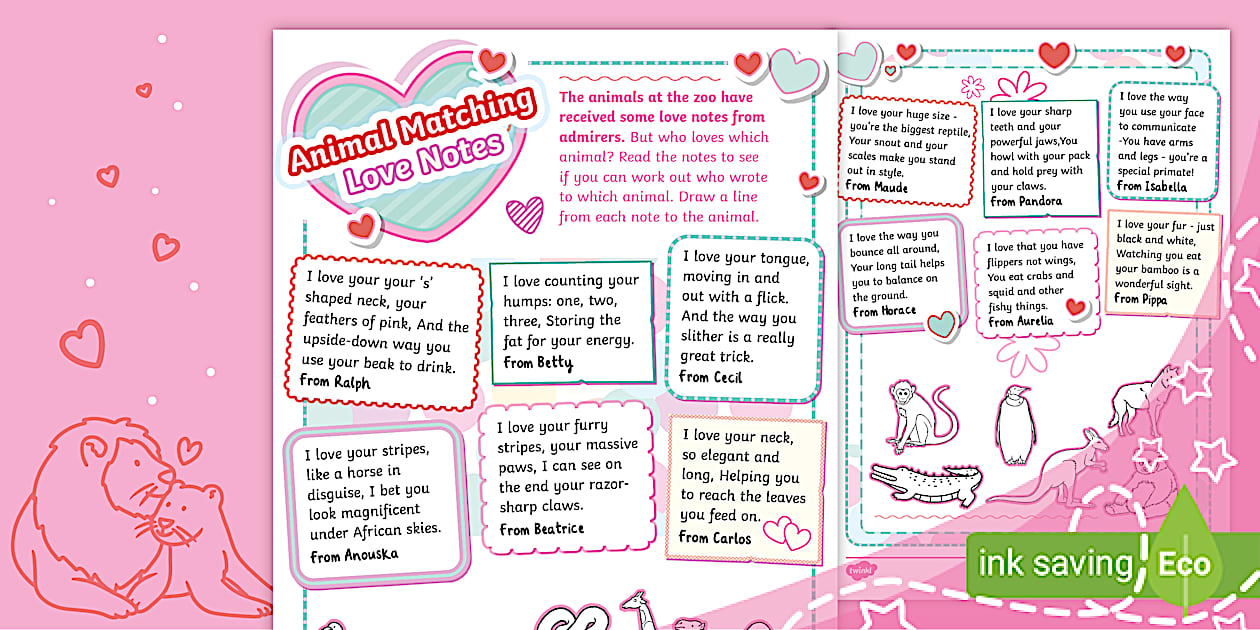 Animal Matching
Love Notes
The animals at the zoo have
received some love notes from
admirers. But who loves which
animal? Read the notes to see
if you can work out who wrote
to which animal. Draw a line
from each note to the animal.
I love your your 's'
shaped neck, your
feathers of pink, And the
upside-down way you
use your beak to drink.
from Ralph
I love counting your
humps: one, two,
three, Storing the
fat for your energy.
from Betty
I love your tongue,
moving in and
out with a flick.
And the way you
slither is a really
great trick.
from Cecil
I love your stripes,
like a horse in
disguise, I bet you
look magnificent
under African skies.
from Anouska
I love your furry
stripes, your massive
paws, I can see on
the end your razor-
sharp claws.
from Beatrice
I love your neck,
so elegant and
long, Helping you
to reach the leaves
you feed on.
from Carlos
I love your huge size -
you're the biggest reptile,
Your snout and your
scales make you stand
out in style.
from Maude
I love your sharp
teeth and your
powerful jaws,You
howl with your pack
and hold prey with
your claws.
from Pandora
I love the way
you use your face
to communicate
-You have arms
and legs - you're a
special primate!
from Isabella
I love the way you
bounce all around,
Your long tail helps
you to balance on
the ground.
from Horace
I love that you have
flippers not wings,
You eat crabs and
squid and other
fishy things.
from Aurelia
I love your fur - just
black and white,
Watching you eat
your bamboo is a
wonderful sight.
from Pippa
twinkl
ink saving
Eco